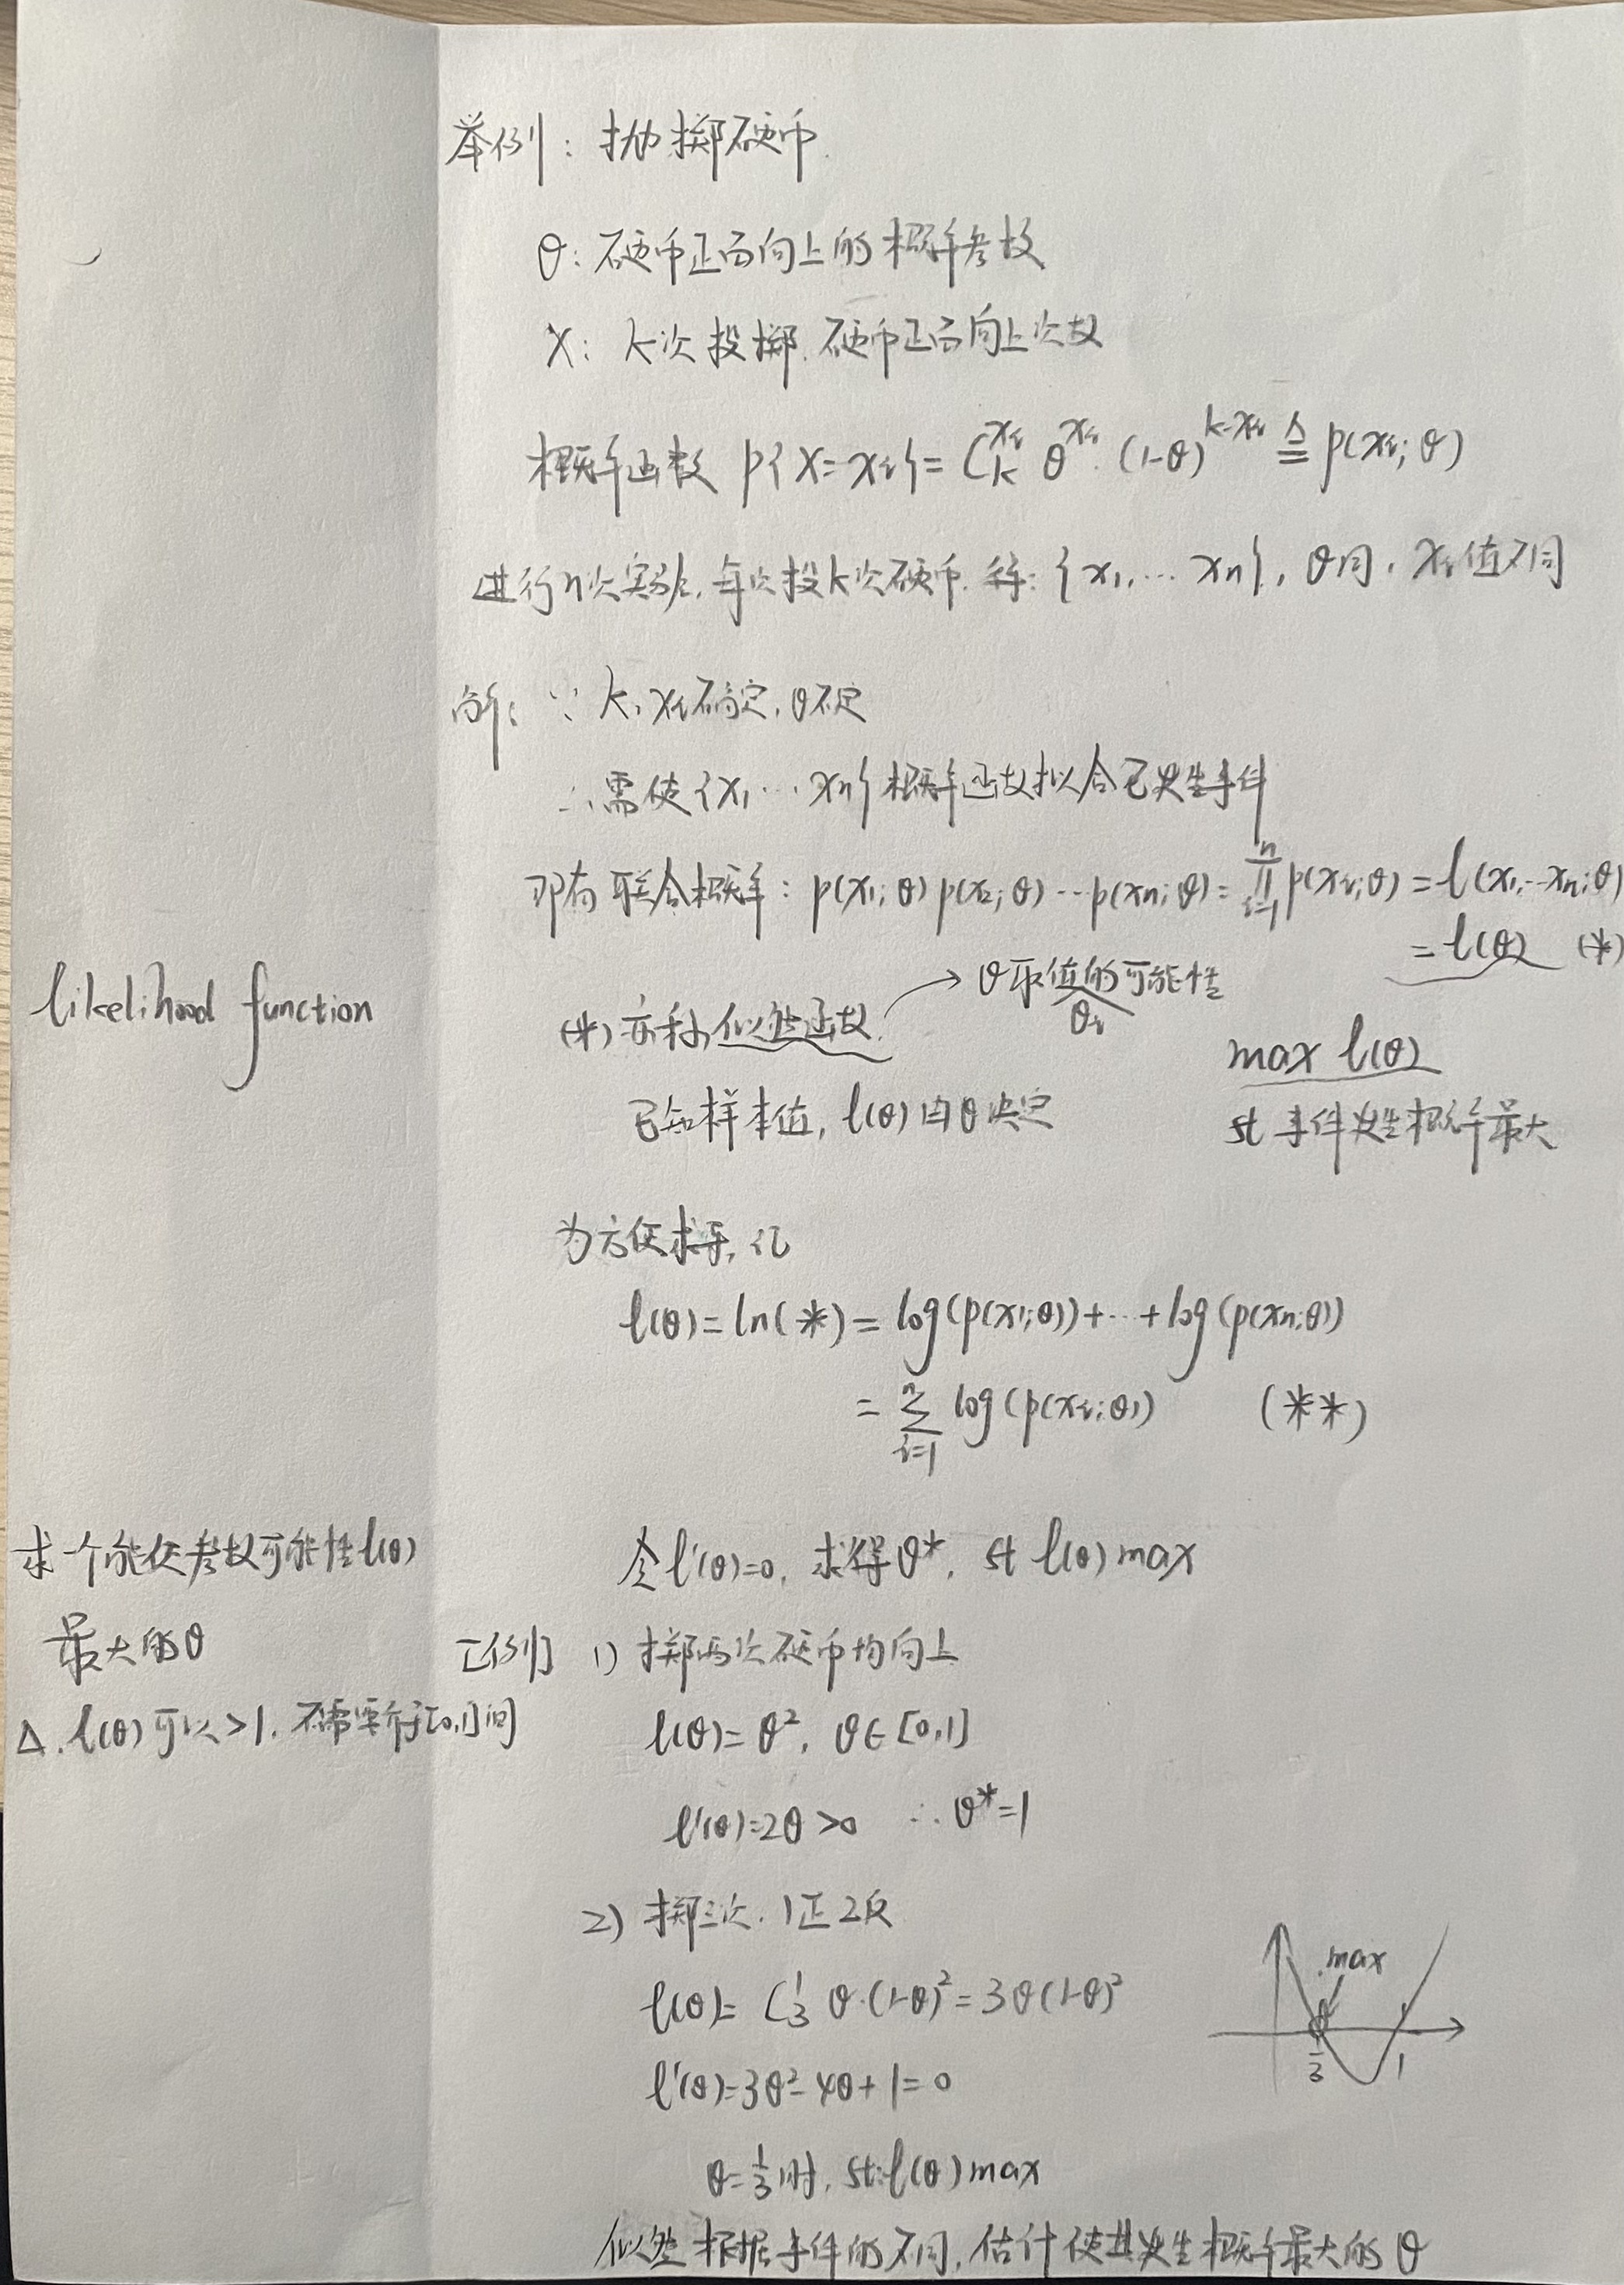 举例：抛掷硬币.
θ: 硬币正面向上的概率参数
X: k次投掷, 硬币正面向上次数
概率函数 p{X=xᵢ}= C_k^{xᵢ} θ^{xᵢ}·(1-θ)^{k-xᵢ} ≜ p(xᵢ; θ)
进行n次实验, 每次投k次硬币, 称: {x₁,… xn}, θ同, xᵢ值不同
解: ∵ k, xᵢ确定, θ不定
∴需使{x₁ … xn}概率函数拟合已发生事件
即有联合概率: p(x₁; θ) p(x₂; θ) … p(xn; θ) = ∏_{i=1}^{n} p(xᵢ;θ) = l(x₁,…xn;θ)
= l(θ) (*)
likelihood function
(*)亦称似然函数. → θ取值的可能性
θᵢ
max l(θ)
已知样本值, l(θ)由θ决定
st 事件发生概率最大
为方便求导, 记
l(θ)= ln(*)= log(p(x₁;θ))+…+log(p(xn;θ))
= ∑_{i=1}^{n} log(p(xᵢ;θ)) (**)
求一个能使参数可能性l(θ)
最大的θ
令l'(θ)=0, 求得θ*, st l(θ) max
Δ. l(θ)可以>1. 不需要介于[0,1]间
[例] 1) 掷两次硬币均向上
l(θ)= θ², θ∈[0,1]
l'(θ)=2θ>0 ∴θ*=1
2) 掷三次. 1正2反
l(θ)= C_3^1 θ·(1-θ)²=3θ(1-θ)²
l'(θ)=3θ²-4θ+1=0
max
1/3
1
θ=1/3时, st:l(θ)max
似然根据事件的不同, 估计使其发生概率最大的θ